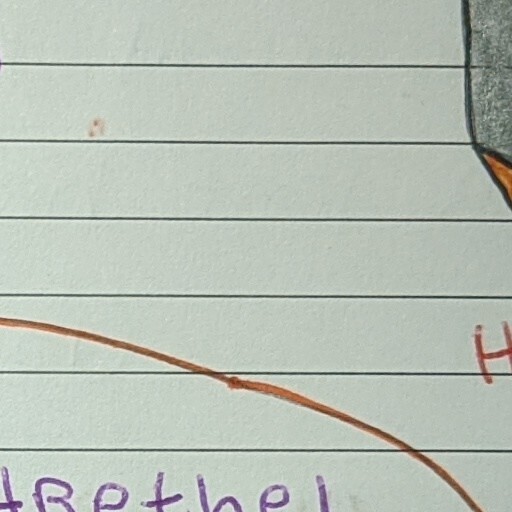 H
tBethel